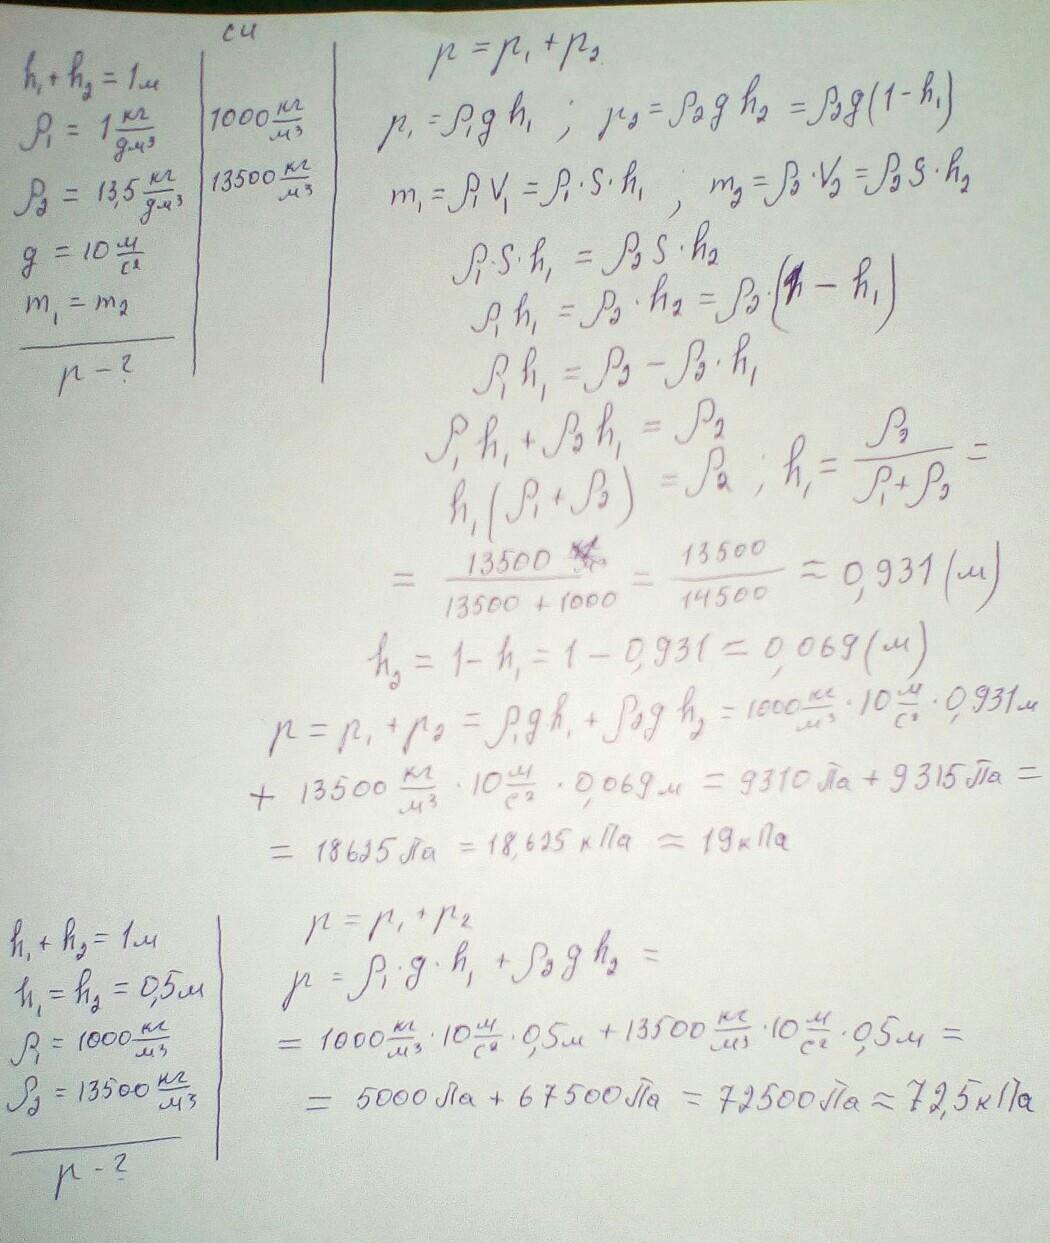 СИ
h₁ + h₂ = 1м
ρ₁ = 1 кг/дм³ 1000 кг/м³
ρ₂ = 13,5 кг/дм³ 13500 кг/м³
g = 10 м/с²
m₁ = m₂
p - ?
p = p₁ + p₂
p₁ = ρ₁gh₁ ; p₂ = ρ₂gh₂ = ρ₂g(1 - h₁)
m₁ = ρ₁V₁ = ρ₁·S·h₁ ; m₂ = ρ₂·V₂ = ρ₂S·h₂
ρ₁·S·h₁ = ρ₂S·h₂
ρ₁h₁ = ρ₂·h₂ = ρ₂·(1 - h₁)
ρ₁h₁ = ρ₂ - ρ₂·h₁
ρ₁h₁ + ρ₂h₁ = ρ₂
h₁(ρ₁ + ρ₂) = ρ₂ ; h₁ = ρ₂/(ρ₁ + ρ₂) =
= 13500/(13500 + 1000) = 13500/14500 ≈ 0,931 (м)
h₂ = 1 - h₁ = 1 - 0,931 = 0,069 (м)
p = p₁ + p₂ = ρ₁gh₁ + ρ₂gh₂ = 1000 кг/м³ · 10 м/с² · 0,931м
+ 13500 кг/м³ · 10 м/с² · 0,069м = 9310 Па + 9315 Па =
= 18625 Па = 18,625 кПа ≈ 19 кПа
h₁ + h₂ = 1м
h₁ = h₂ = 0,5м
ρ₁ = 1000 кг/м³
ρ₂ = 13500 кг/м³
p - ?
p = p₁ + p₂
p = ρ₁·g·h₁ + ρ₂gh₂ =
= 1000 кг/м³ · 10 м/с² · 0,5м + 13500 кг/м³ · 10 м/с² · 0,5м =
= 5000 Па + 67500 Па = 72500 Па ≈ 72,5 кПа